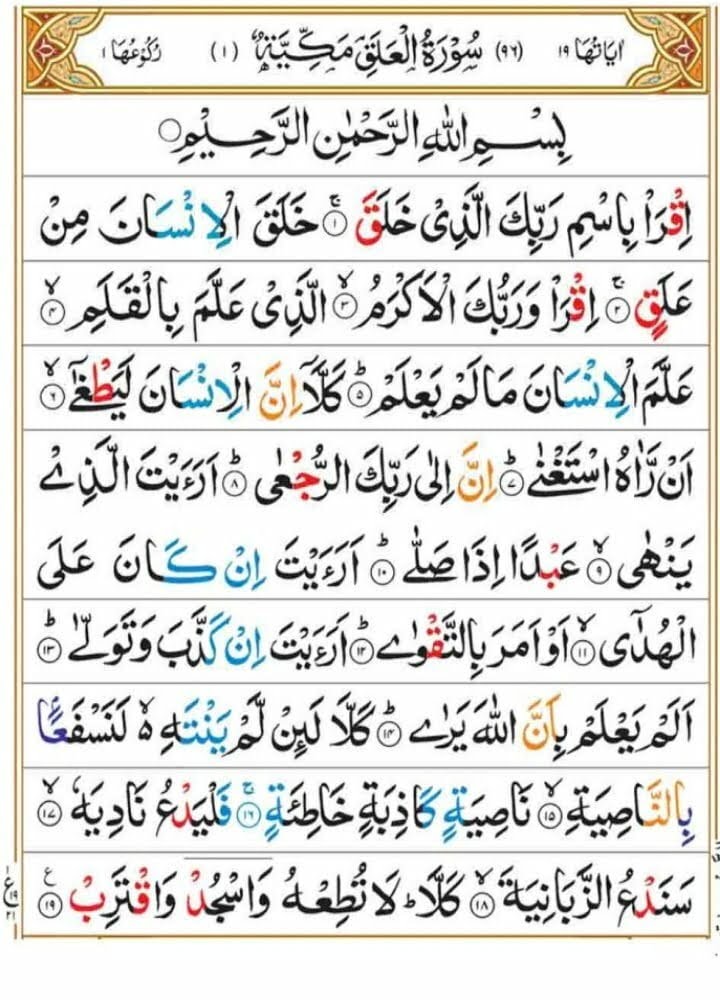 اٰیَاتُهَا ١٩ (٩٦) سُوْرَةُ الْعَلَقِ مَكِّیَّةٌ (١) رُكُوْعُهَا ١
بِسْمِ اللّٰهِ الرَّحْمٰنِ الرَّحِیْمِ ○
اِقْرَاْ بِاسْمِ رَبِّكَ الَّذِیْ خَلَقَ ۚ﴿١﴾ خَلَقَ الْاِنْسَانَ مِنْ
عَلَقٍ ۚ﴿٢﴾ اِقْرَاْ وَرَبُّكَ الْاَكْرَمُ ۙ﴿٣﴾ الَّذِیْ عَلَّمَ بِالْقَلَمِ ۙ﴿٤﴾
عَلَّمَ الْاِنْسَانَ مَا لَمْ یَعْلَمْ ؕ﴿٥﴾ كَلَّاۤ اِنَّ الْاِنْسَانَ لَیَطْغٰۤی ۙ﴿٦﴾
اَنْ رَّاٰهُ اسْتَغْنٰی ؕ﴿٧﴾ اِنَّ اِلٰی رَبِّكَ الرُّجْعٰی ؕ﴿٨﴾ اَرَءَیْتَ الَّذِیْ
یَنْهٰی ۙ﴿٩﴾ عَبْدًا اِذَا صَلّٰی ؕ﴿١٠﴾ اَرَءَیْتَ اِنْ كَانَ عَلَی
الْهُدٰۤی ۙ﴿١١﴾ اَوْ اَمَرَ بِالتَّقْوٰی ؕ﴿١٢﴾ اَرَءَیْتَ اِنْ كَذَّبَ وَتَوَلّٰی ؕ﴿١٣﴾
اَلَمْ یَعْلَمْ بِاَنَّ اللّٰهَ یَرٰی ؕ﴿١٤﴾ كَلَّا لَئِنْ لَّمْ یَنْتَهِ ۙ۬ لَنَسْفَعًۢا
بِالنَّاصِیَةِ ۙ﴿١٥﴾ نَاصِیَةٍ كَاذِبَةٍ خَاطِئَةٍ ۚ﴿١٦﴾ فَلْیَدْعُ نَادِیَهٗ ۙ﴿١٧﴾
سَنَدْعُ الزَّبَانِیَةَ ۙ﴿١٨﴾ كَلَّا ؕ لَا تُطِعْهُ وَاسْجُدْ وَاقْتَرِبْ ﴿١٩﴾ ع